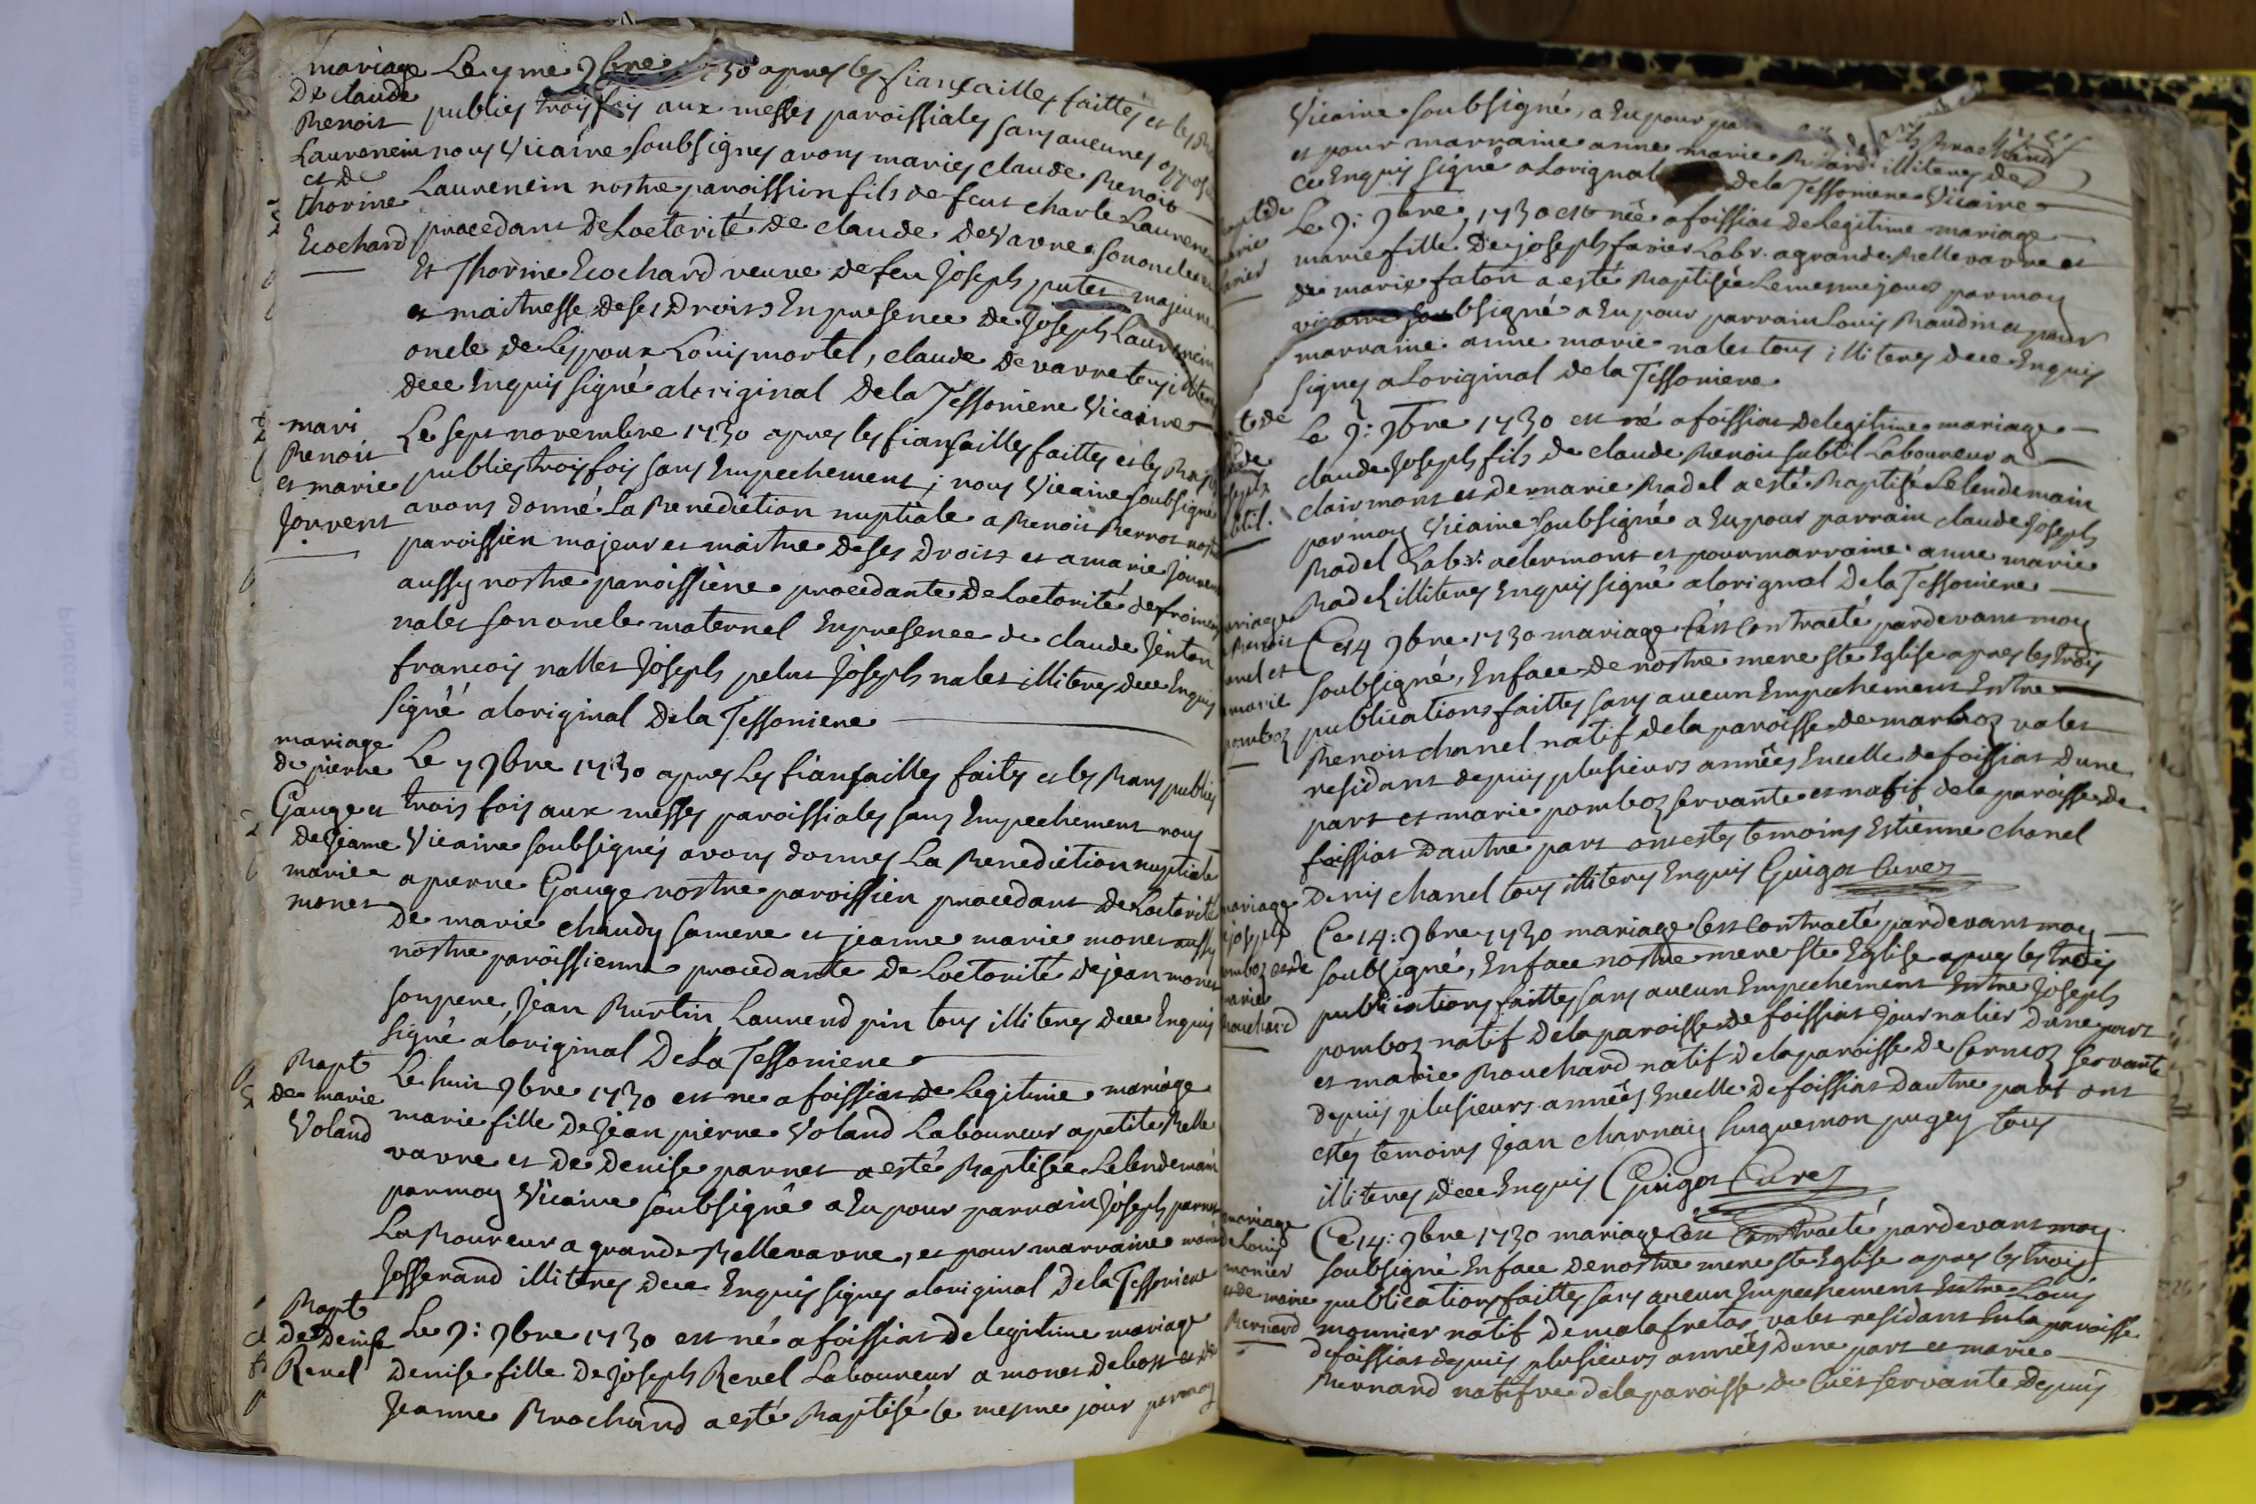 mariage
De claude
Benoit
Laurencin
et de
thorine
Ecochard
Le 7me 9bre 1730 apres les fiançailles faittes et les
publies trois fois aux messes paroissiales sans aucunes
nous Vicaire Soubsignes avons maries claude Benoit
Laurencin nostre paroissien fils de feut charle Laurencin
procedant De Loctorité De claude Devavre son oncle
Et Thorine Ecochard veuve de feu Joseph putet majeure
et maitresse de ses Droits En presence de Joseph Laurencin
oncle de Lepoux Louis mortel, claude devavre tous illiteres
dece Enquis signé a loriginal Dela Tessoniere Vicaire
mari
Benoit
et marie
Jouvent
Le sept novembre 1730 apres les fiançailles faittes et les Bans
publies trois fois sans Empechement, nous Vicaire Soubsigné
avons donné La Benediction nuptiale a Benoit Berrot nostre
paroissien majeur et maitre de ses Droits et a marie Jouvent
aussy nostre paroissiene procedante De Loctorité de
nalet son oncle maternel En presence de claude Jenton
francois nallet Joseph pelut Joseph nalet illiteres dece Enquis
signé a loriginal Dela Tessoniere
mariage
de pierre
Gauge et
de Jeanne
marie
monet
Le 7 9bre 1730 apres Les fiançailles faites et les Bans publies
trois fois aux messes paroissiales sans Empechement nous
Vicaire Soubsignes avons donnes La Benediction nuptiale
a pierre Gauge nostre paroissien procedant De Loctorité
De marie chaudy sa mere et jeanne marie monet aussy
nostre paroissienne procedante De Loctorité de jean monet
son pere, Jean Burtin Laurend pin tous illiteres dece Enquis
signé a loriginal DeLa Tessoniere
Bapt
de marie
Voland
Le huit 9bre 1730 est ne a foissiat de Legitime mariage
marie fille De Jean pierre Voland Laboureur a petite Belle
vavre et De Denise parret a esté Baptisée Le lendemain
par moy Vicaire soubsigné a Eu pour parrain Joseph parret
La Boureur a grande Bellevavre, et pour marraine marie
Josserand illiteres dece Enquis signes a loriginal De la Tessoniere
Bapt
De Denise
Revel
Le 9: 9bre 1730 est né a foissiat de legitime mariage
Denise fille De Joseph Revel Laboureur a monet debost et de
Jeanne Brochand a esté Baptisé le mesme jour par moy
Vicaire soubsigné, a Eu pour
et pour marraine anne marie illiteres de
ce Enquis signé a Lorignal dela Tessoniere Vicaire
Le 9: 9bre 1730 est née a foissiat de Legitime mariage
marie fille De joseph favier Labr. a grande Bellevavre et
de marie faton a esté Baptisée Le mesme jour par moy
vicaire soubsigné a Eu pour parrain Louis Baudin et pour
marraine anne marie nalet tous illiteres dece Enquis
signes a Loriginal de la Tessoniere
Le 9: 9bre 1730 est né a foissiat de legitime mariage
claude Joseph fils de claude Benoit subtil Laboureur a
clairmont et de marie Badel a esté Baptisé Le lendemain
par moy Vicaire soubsigné a Eu pour parrain claude Joseph
Badel Labr. a clermont et pour marraine anne marie
Badel illiteres Enquis signé a lorignal De la Tessoniere
mariage
Benoit
chanel et
marie
pomboz
Ce 14 9bre 1730 mariage cest Contracté par devant moy
soubsigné, En face de nostre mere ste Eglise apres les trois
publications faittes sans aucun Empechement Entre
Benoit chanel natif dela paroisse de marboz valet
residant depuis plusieurs années En celle de foissiat Dune
part et marie pomboz servante et natif de la paroisse de
foissiat Dautre part ont estes temoins Estienne chanel
Denis chanel tous illiteres Enquis Guigot Curez
mariage
joseph
pomboz et de
marie
Bouchard
Ce 14: 9bre 1730 mariage cest Contracté par devant moy
soubsigné, En face nostre mere ste Eglise apres les trois
publications faittes sans aucun Empechement Entre Joseph
pomboz natif de la paroisse de foissiat Journalier Dune part
et marie Bouchard natif de la paroisse de Cormoz servante
depuis plusieurs années En celle de foissiat Dautre part ont
estés temoins Jean charnay huguemon pugey tous
illiteres dece Enquis Guigot Curez
mariage
de Louis
monier
et de marie
Bernard
Ce 14: 9bre 1730 mariage cest Contracté par devant moy
soubsigné En face De nostre mere ste Eglise apres les trois
publications faittes sans aucun Empechement Entre Louis
monnier natif De malafretas valet residant En la paroisse
de foissiat depuis plusieurs années Dune part et marie
Bernard natifve de la paroisse de Cuet servante Depuis